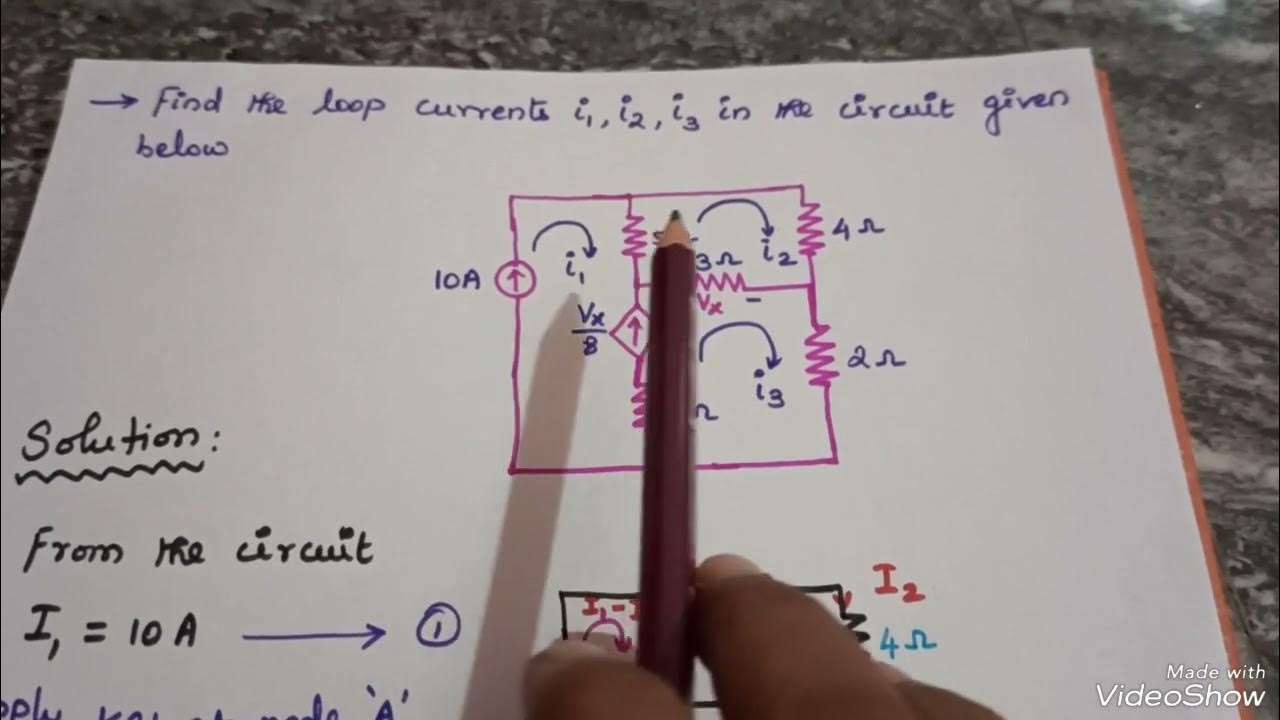 → Find the loop currents i₁, i₂, i₃ in the circuit given
below
4Ω
i₁
i₂
3Ω
10A
Vx -
Vx/8
i₃
2Ω
Ω
Solution:
From the circuit
I₁ = 10A → ①
I₂
I₁-
4Ω
node 'A'
Made with
VideoShow